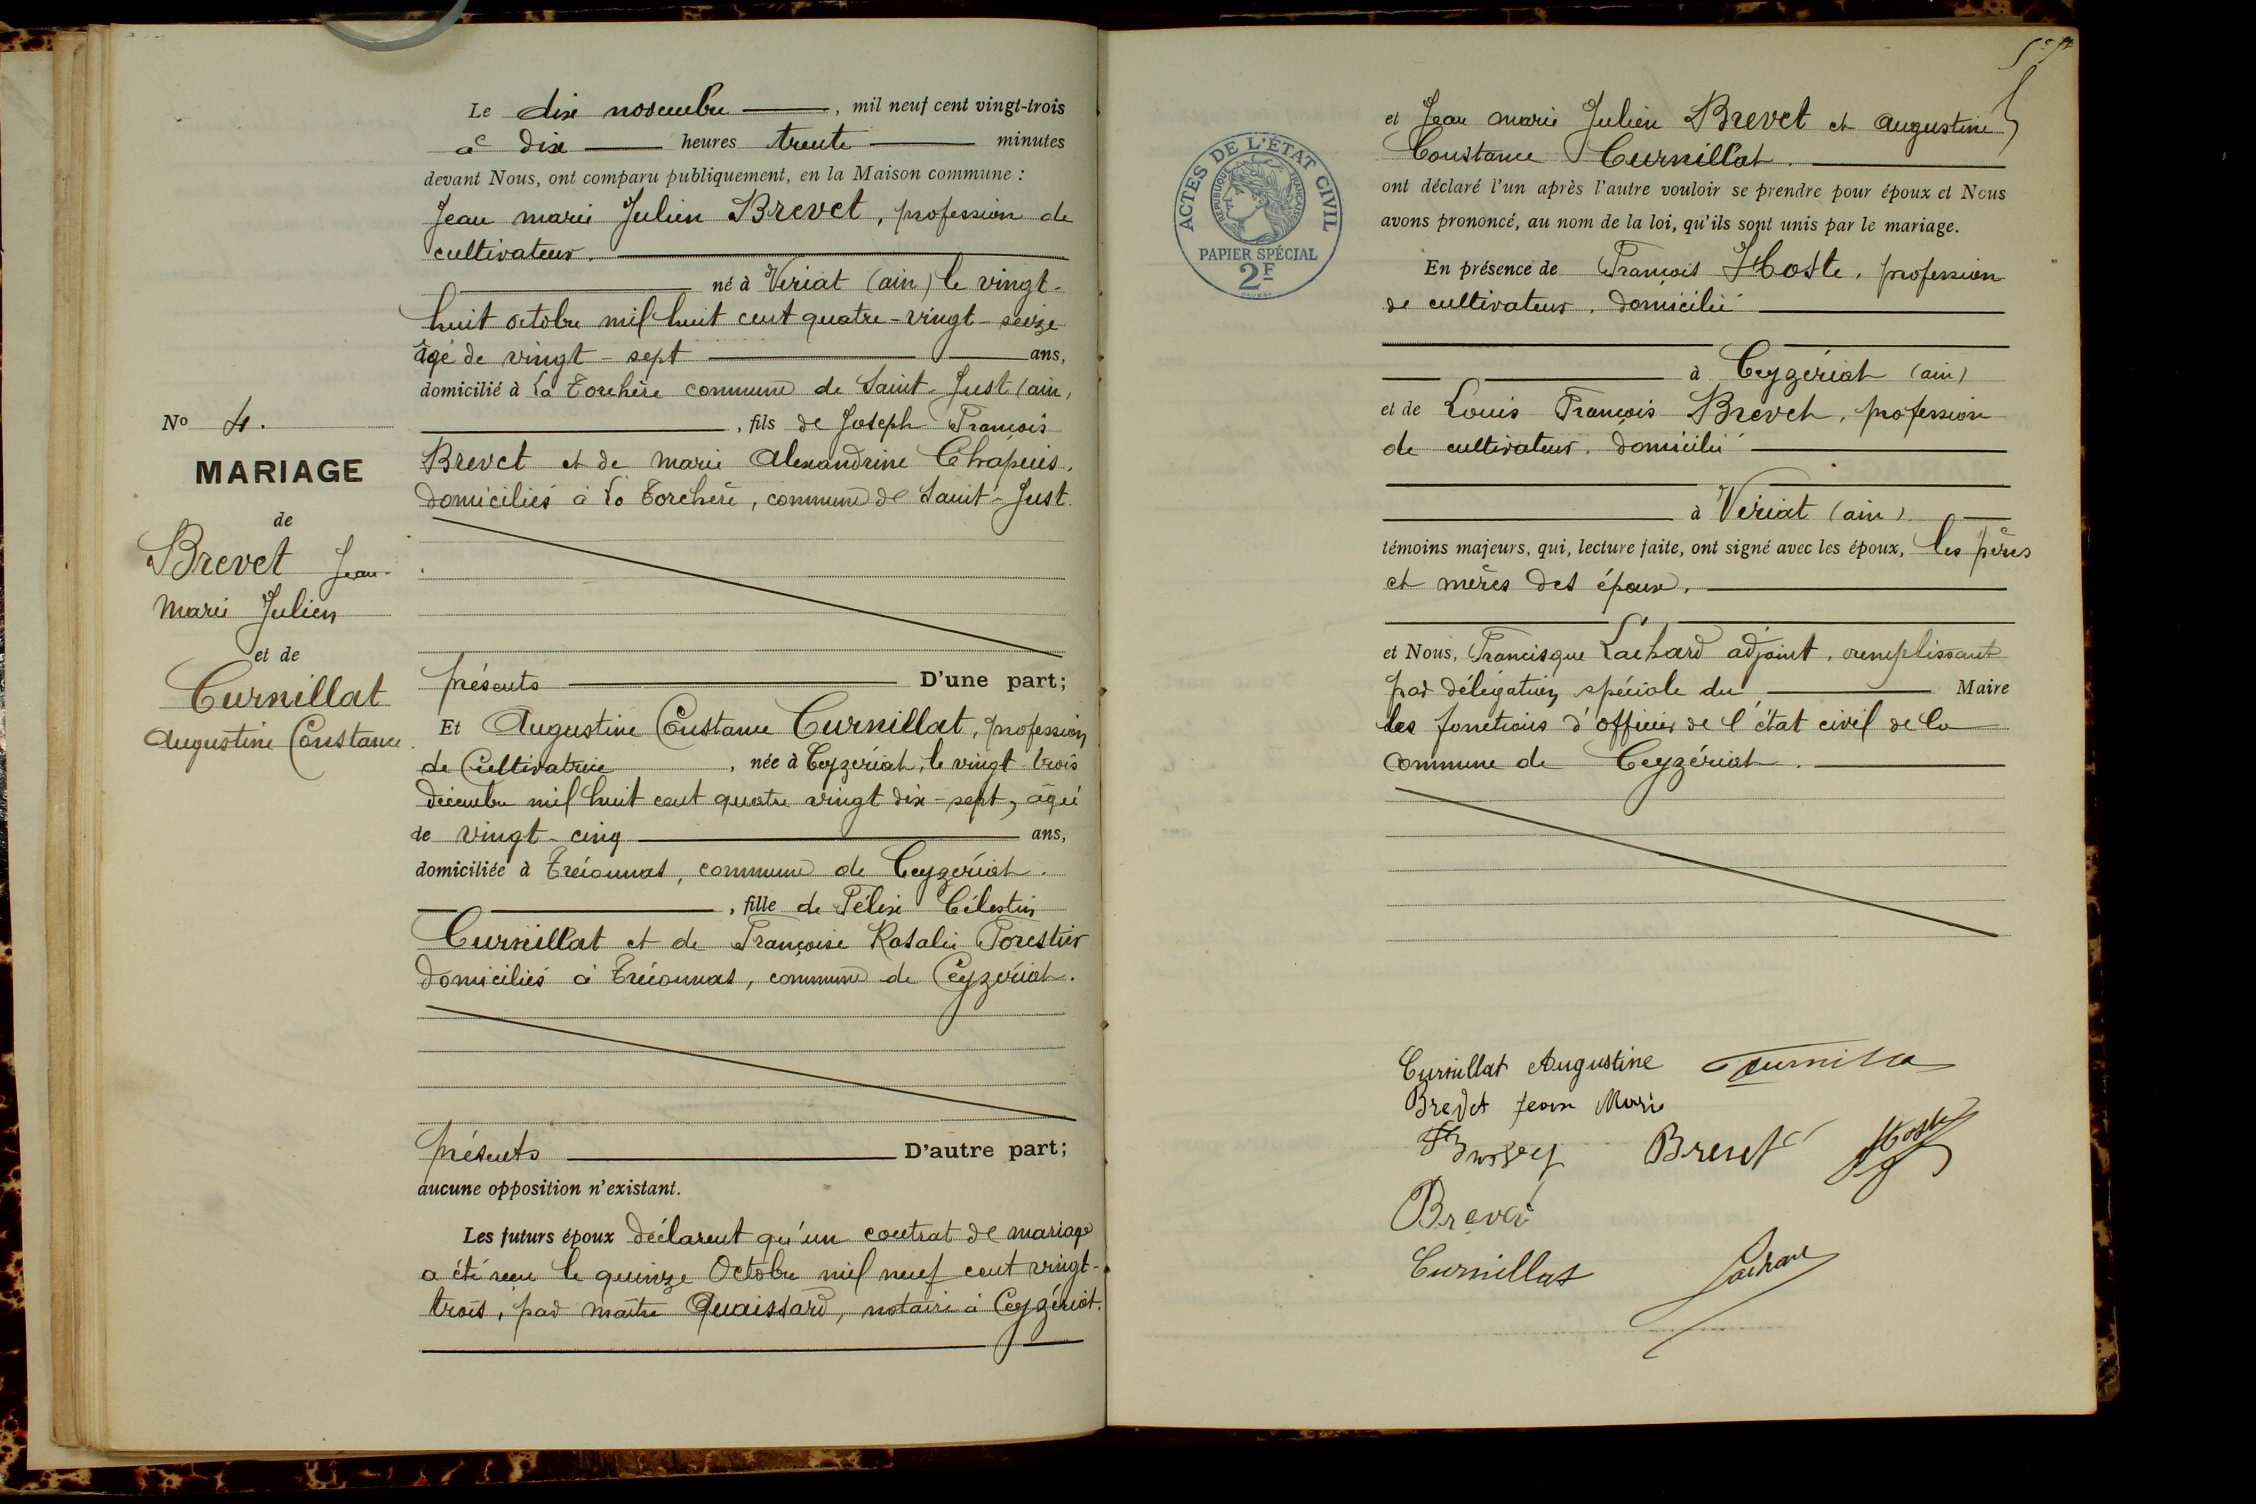 Le dix novembre, mil neuf cent vingt-trois
à dix heures trente minutes
devant Nous, ont comparu publiquement, en la Maison commune :
Jean marie Julien Brevet, profession de
cultivateur.
né à Viriat (ain) le vingt-
huit octobre mil huit cent quatre-vingt-seize
âgé de vingt-sept ans,
domicilié à La Torchère commune de Saint-Just (ain)
, fils de Joseph François
Brevet et de marie Alexandrine Chapuis,
domiciliés à La Torchère, commune de Saint-Just.
présents D'une part;
Et Augustine Constance Curnillat, profession
de Cultivatrice, née à Ceyzériat, le vingt trois
décembre mil huit cent quatre vingt dix-sept, âgée
de vingt-cinq ans,
domiciliée à Tréconnas, commune de Ceyzériat.
, fille de Félix Célestin
Curnillat et de Françoise Rosalie Forestier
domiciliés à Tréconnas, commune de Ceyzériat.
présents D'autre part;
aucune opposition n'existant.
Les futurs époux déclarent qu'un contrat de mariage
a été reçu le quinze Octobre mil neuf cent vingt-
trois, par maître Quaissard, notaire à Ceyzériat.
No 4.
MARIAGE
de
Brevet Jean-
Marie Julien
et de
Curnillat
Augustine Constance
et Jean marie Julien Brevet et Augustine
Constance Curnillat.
ont déclaré l'un après l'autre vouloir se prendre pour époux et Nous
avons prononcé, au nom de la loi, qu'ils sont unis par le mariage.
En présence de François Hoste, profession
de cultivateur, domicilié
à Ceyzériat (ain)
et de Louis François Brevet, profession
de cultivateur, domicilié
à Viriat (ain)
témoins majeurs, qui, lecture faite, ont signé avec les époux, les pères
et mères des époux.
et Nous, Francisque Lachard adjoint, remplissant
par délégation spéciale du Maire
les fonctions d'officier de l'état civil de la
commune de Ceyzériat.
ACTES DE L'ÉTAT CIVIL
RÉPUBLIQUE FRANÇAISE
PAPIER SPÉCIAL
2F
Curnillat Augustine
Brevet Jean Marie
Brevet Hoste
Brevet
Curnillat Lachard